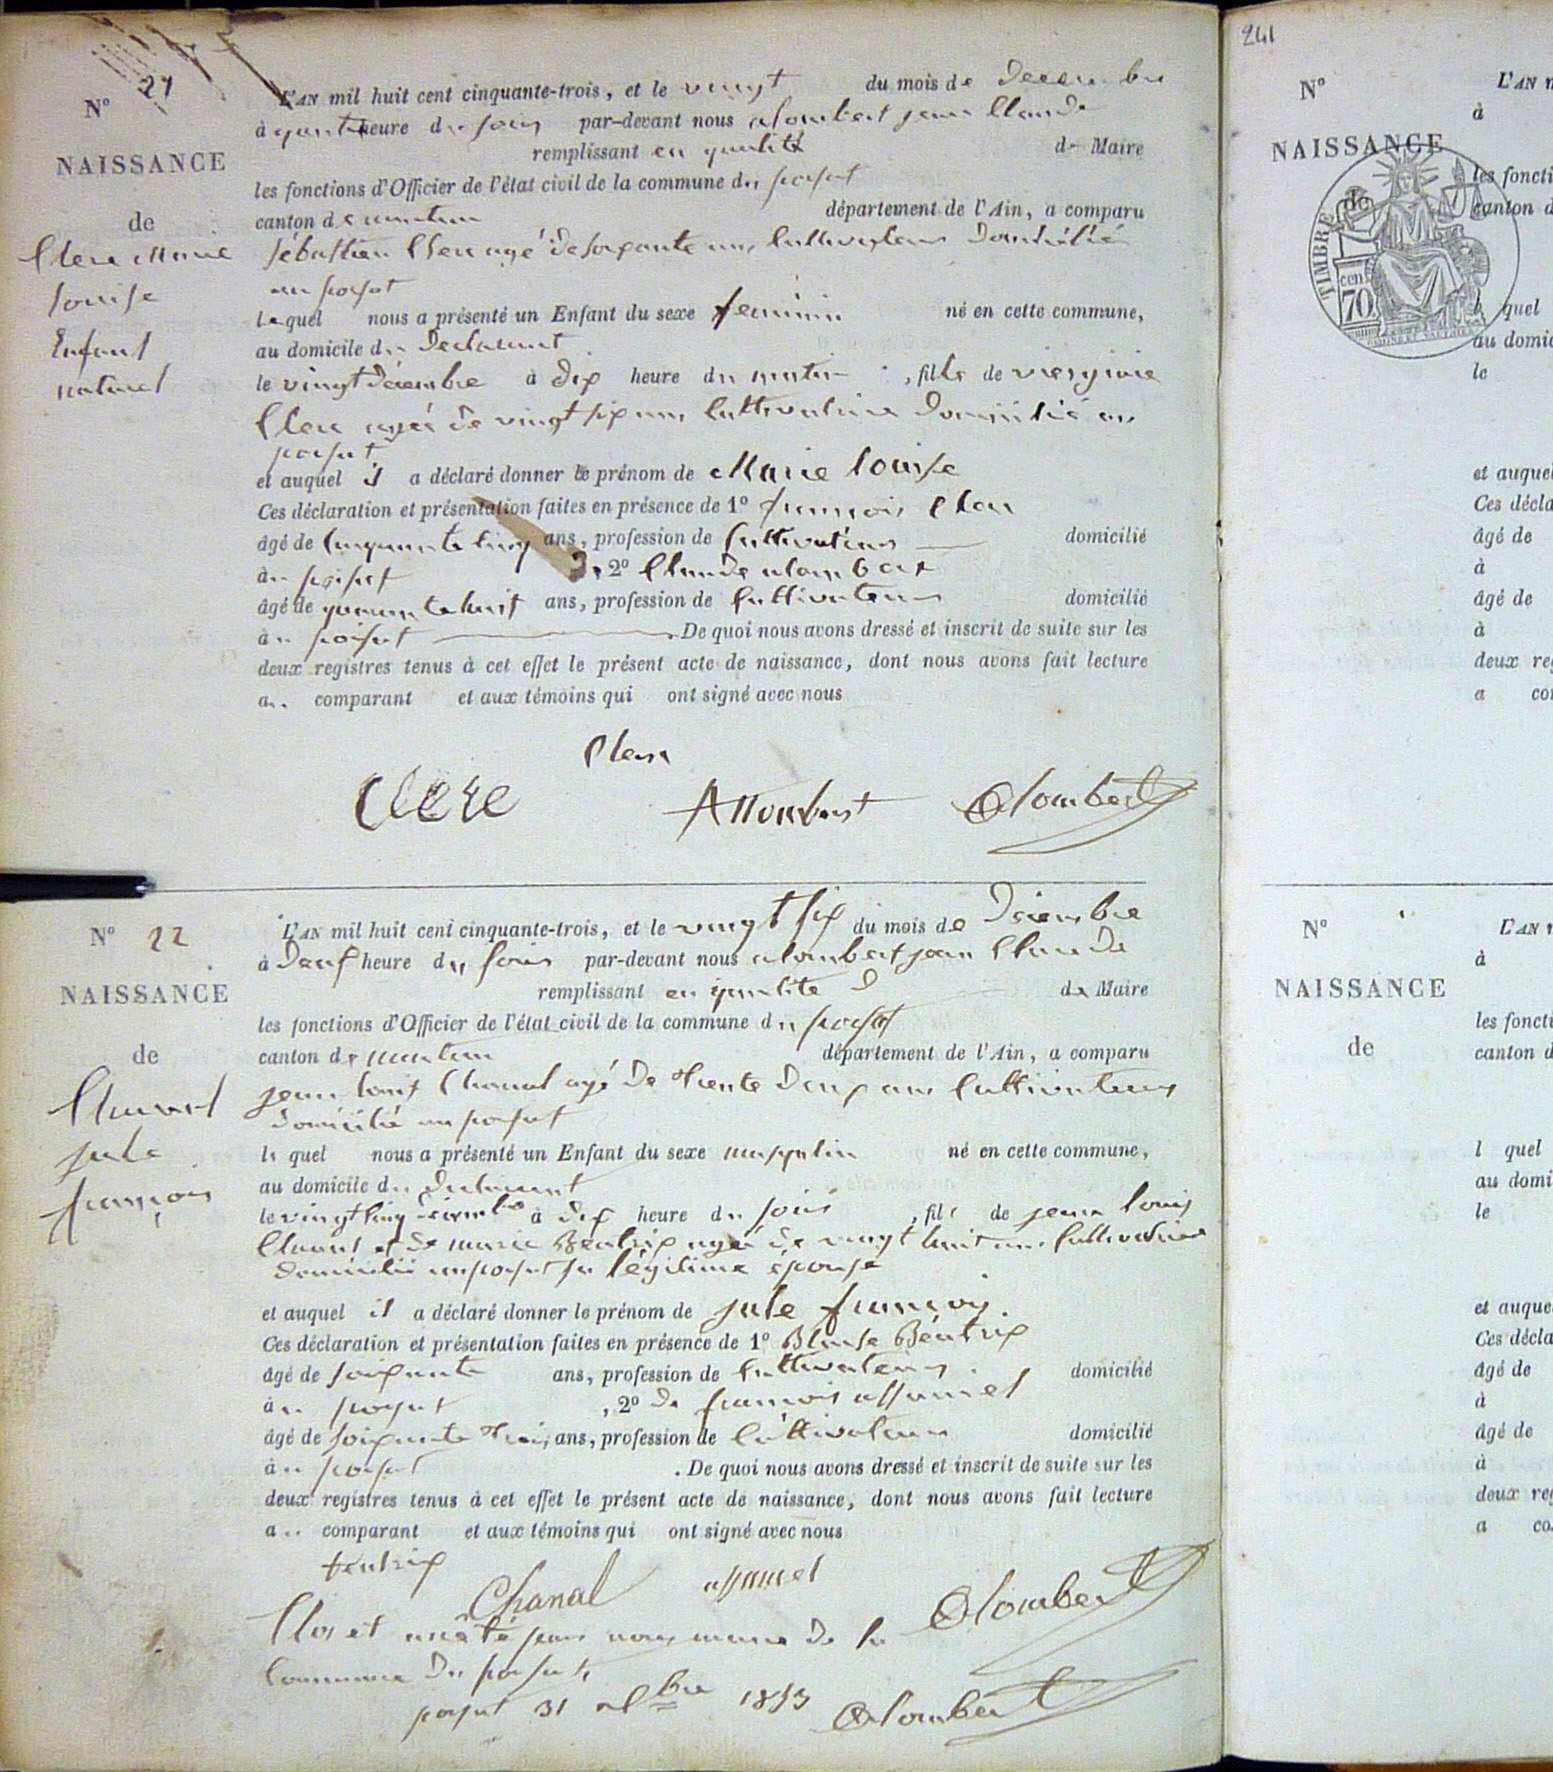 N° 21
NAISSANCE
de
Clerc Marie
louise
Enfant
naturel
L'AN mil huit cent cinquante-trois, et le vingt du mois de Decembre
à quatre heure du soir par-devant nous alombert jean Claude
remplissant en qualité de Maire
les fonctions d'Officier de l'état civil de la commune du poisat
canton de nantua département de l'Ain, a comparu
Sébastien Clerc agé de soixante ans Cultivateur Domicilié
au poisat
lequel nous a présenté un Enfant du sexe feminin né en cette commune,
au domicile du Declarant
le vingt décembre à dix heure du matin, fille de viergine
Clerc agée de vingt six ans Cultivatrice Domicilié au
poisat
et auquel il a déclaré donner le prénom de Marie louise
Ces déclaration et présentation faites en présence de 1° françois Clerc
âgé de Cinquante cinq ans, profession de Cultivateur domicilié
au poisat De 2° Claude alombert
âgé de quarante huit ans, profession de Cultivateur domicilié
au poisat . De quoi nous avons dressé et inscrit de suite sur les
deux registres tenus à cet effet le présent acte de naissance, dont nous avons fait lecture
au comparant et aux témoins qui ont signé avec nous
Clerc
Clere Allombert Alombert
N° 22
NAISSANCE
de
Chanal
jule
françois
L'AN mil huit cent cinquante-trois, et le vingt six du mois de Décembre
à Deux heure du soir par-devant nous alombert jean Claude
remplissant en qualité de Maire
les fonctions d'Officier de l'état civil de la commune du poisat
canton de nantua département de l'Ain, a comparu
jean louis Chanal agé De trente Deux ans Cultivateur
domicilié au poisat
le quel nous a présenté un Enfant du sexe masqulin né en cette commune,
au domicile du declarant
le vingt cinq décembre à dix heure du soir, fils de jean louis
Chanal et de marie Béatrix agée de vingt huit ans Cultivatrice
domicilié au poisat sa légitime épouse
et auquel il a déclaré donner le prénom de jule françois.
Ces déclaration et présentation faites en présence de 1° Blaise Béatrix
âgé de soixante ans, profession de Cultivateur domicilié
au poisat , 2° De françois assumel
âgé de soixante trois ans, profession de Cultivateur domicilié
au poisat . De quoi nous avons dressé et inscrit de suite sur les
deux registres tenus à cet effet le présent acte de naissance, dont nous avons fait lecture
au comparant et aux témoins qui ont signé avec nous
beatrix Chanal assumel Alombert
Clos et arrêté par nous maire de la
Commune Du poisat,
poisat 31 Xbre 1853 Alombert
241
N° L'AN
à
NAISSANCE
de
TIMBRE
cen
70
les foncti
canton d
l quel
au domic
le
et auque
Ces décla
âgé de
à
âgé de
à
deux reg
a co
N° L'AN
à
NAISSANCE
de
les foncti
canton d
l quel
au domi
le
et auque
Ces décla
âgé de
à
âgé de
à
deux reg
a co